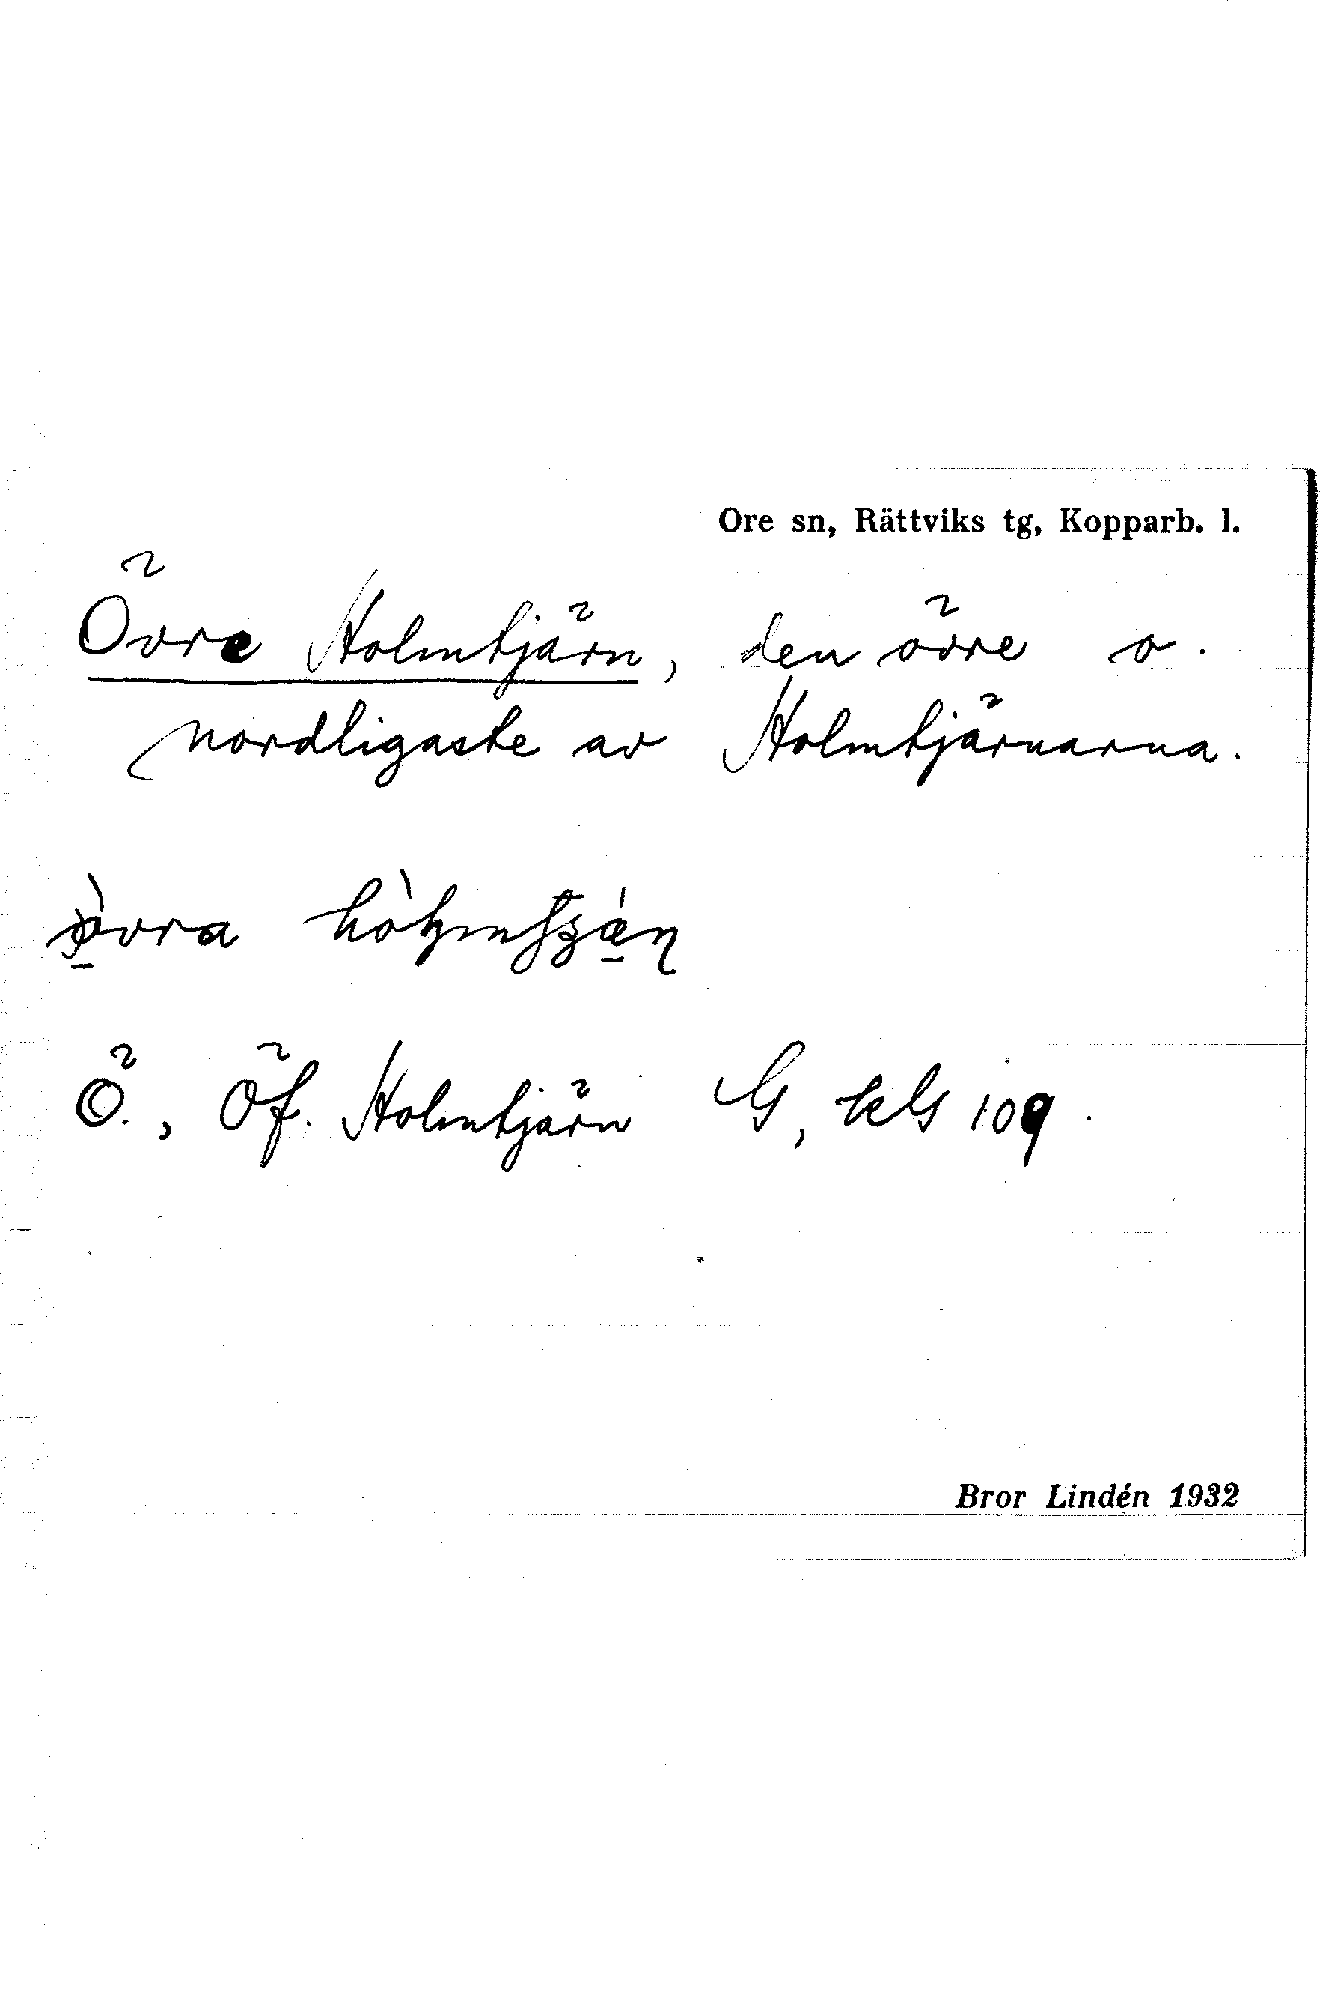 Ore sn, Rättviks tg, Kopparb. l.
Övre Holmtjärn, den övre o.
nordligaste av Holmtjärnarna.
Ö., Öf. Holmtjärn G, kG 109.
Bror Lindén 1932